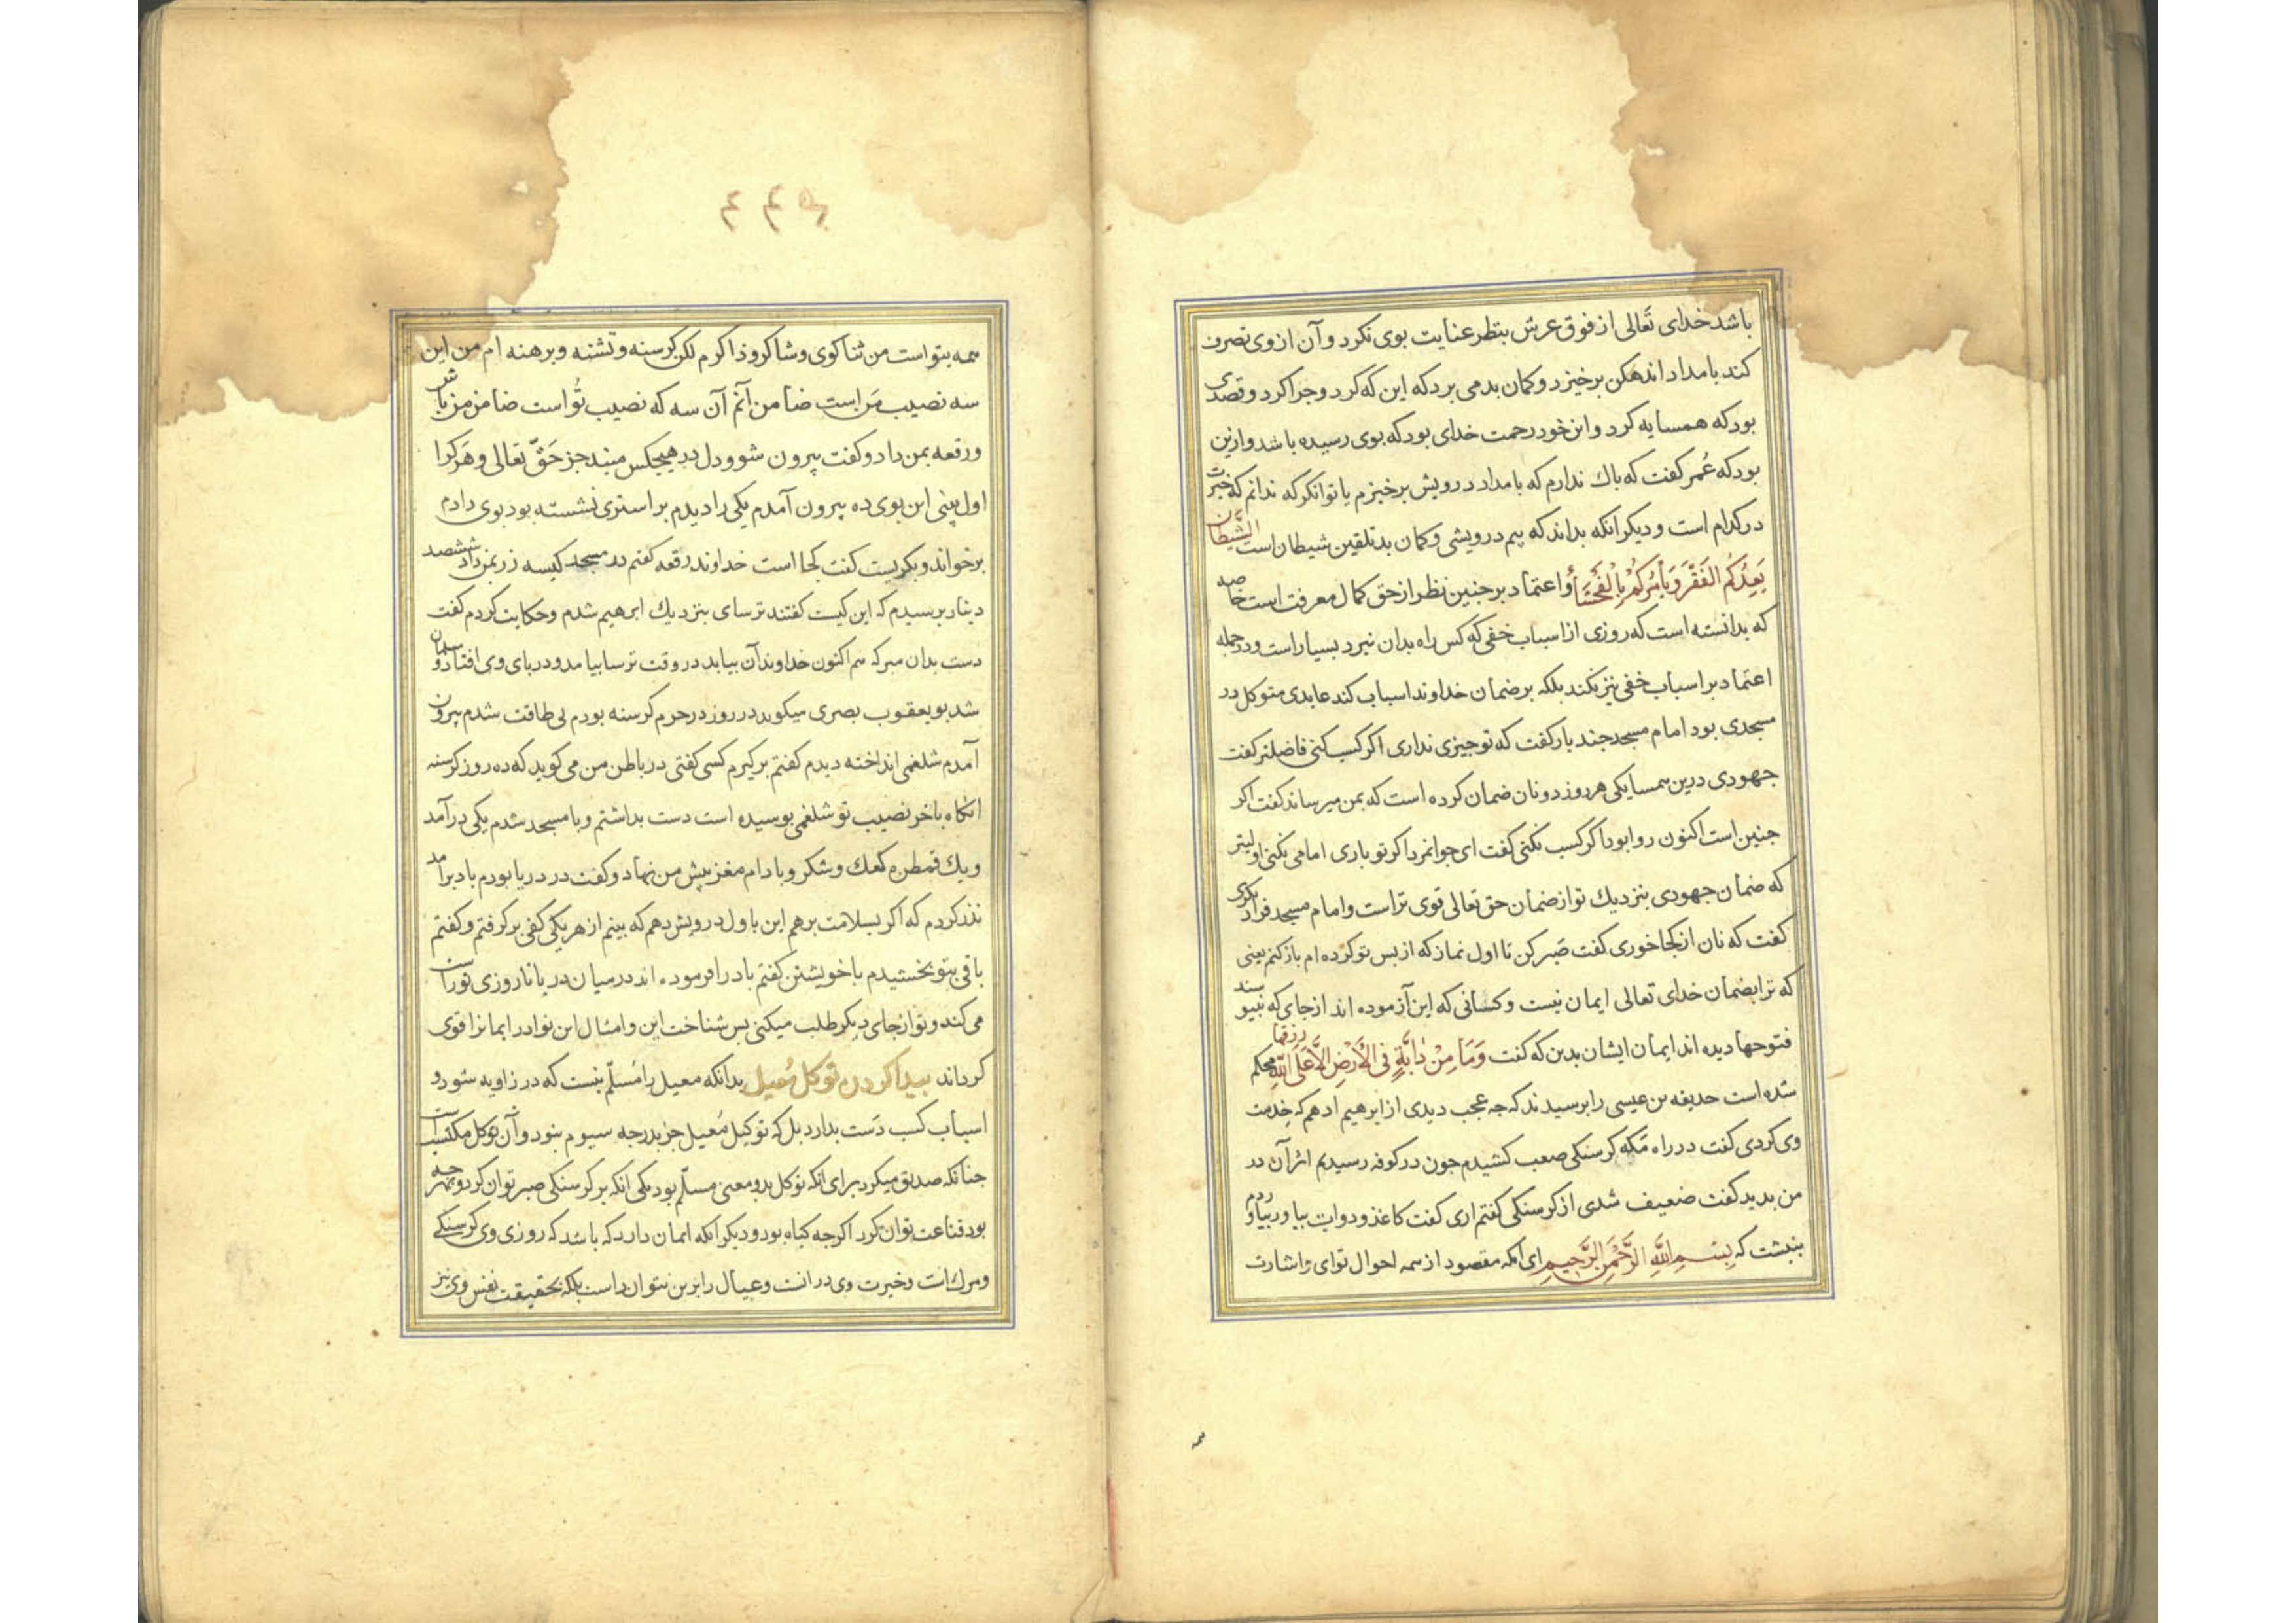 باشد خدای تعالی از فوق عرش بنظر عنایت بوی نکرد و آن از وی تصرف
کند بامداد اندهکن برخیزد و کمان بد می برد که این که کرد و چرا کرد و قصدی
بود که همسایه کرد و این خود رحمت خدای بود که بوی رسیده باشد و ازین
بود که عُمر کفت که باك ندارم که بامداد درویش برخیزم یا توانکر که ندانم که خیرت
در کدام است و دیکر انکه بداند که بیم درویشی و کمان بد تلقین شیطان است الشَّیطَانُ
یَعِدُکُمُ الفَقْرَ وَیَأْمُرُکُمْ بِالْفَحْشَاءِ و اعتماد بر جنین نظر از حق کمال معرفت است خاصه
که بدانسته است که روزی از اسباب خفی که کس راه بدان نبرد بسیار است و در جمله
اعتماد بر اسباب خفی نیز نکند بلکه بر ضمان خداوند اسباب کند عابدی متوکل در
مسجدی بود امام مسجد جند بار کفت که تو جیزی نداری اکر کسب کنی فاضلتر کفت
جهودی درین همسایکی هر روز دو نان ضمان کرده است که بمن میرساند کفت اکر
جنین است اکنون روا بود اکر کسب نکنی کفت ای جوانمرد اکر تو باری امامی نکنی اولیتر
که ضمان جهودی بنزدیك تو از ضمان حق تعالی قوی تر است و امام مسجد فرا دیکری
کفت که نان از کجا خوری کفت صَبر کن تا اول نماز که از بس تو کرده ام باز کنم یعنی
که ترا بضمان خدای تعالی ایمان نیست و کسانی که این آزموده اند از جای که نبیوسند
فتوحها دیده اند ایمان ایشان بدین که کفت وَمَا مِنْ دَابَّةٍ فِی الأَرْضِ إلاَّ عَلَی اللّٰهِ رِزْقُهَا محکم
شده است حدیفه بن عیسی را برسیدند که جه عجب دیدی از ابرهیم ادهم که خِدمت
وی کردی کفت در راه مَکه کرسنکی صعب کشیدم جون در کوفه رسیدیم اثر آن در
من بدید کفت ضعیف شدی از کرسنکی کفتم اری کفت کاغذ و دوات بیاور بیاوردم
بنبشت که بِسْمِ اللّٰهِ الرَّحْمٰنِ الرَّحِیمِ ای انکه مقصود از همه احوال توای و اشارت
همه
همه بتو است من ثنا کوی و شاکر و ذاکرم لکن کرسنه و تشنه و برهنه ام من این
سه نصیب مَن است ضامن آنم آن سه که نصیب تُو است ضامن من باش
و رقعه بمن داد و کفت بیرون شو و دل در هیچکس مبند جز حَقّ تعالی و هَر کرا
اول بینی این بوی ده بیرون آمدم یکی را دیدم بر استری نشسته بود بوی دادم
برخواند و بکریست کفت کجا است خداوند رقعه کفتم در مسجد کیسه زر بمن داد ششصد
دینار برسیدم که این کیست کفتند ترسای بنزدیك ابرهیم شدم و حکایت کردم کفت
دست بدان مبر که هم اکنون خداوند آن بیاید در وقت ترسا بیامد و در بای وی افتاد و مسلمان
شد بو یعقوب بصری میکوید در روز در حرم کرسنه بودم بی طاقت شدم بیرون
آمدم شلغمی انداخته دیدم کفتم برکیرم کسی کفتی در باطن من می کوید که ده روز کرسنه
انکاه باخر نصیب تو شلغمی بوسیده است دست بداشتم و با مسجد شدم یکی در آمد
و یك قمطره کعك و شکر و بادام مغز بیش من نهاد و کفت در دریا بودم باد برامد
نذر کردم که اکر بسلامت برهم این با اول درویش دهم که بینم از هر یکی کفی بر کرفتم و کفتم
باقی بتو بخشیدم با خویشتن کفتم باد را فرموده اند در میان دریا تا روزی تو راست
می کند و تو از جای دیکر طلب میکنی بس شناخت این و امثال این نوادر ایمانرا قوی
کرداند بیدا کردن توکل مُعیل بدانکه معیل را مُسلّم نیست که در زاویه شود و
اسباب کسب دَست بدارد بل که توکیل مُعیل جز بدرجه سیوم نبود و آن توکل مکتسب است
جنانکه صدیق میکرد برای انکه توکل بدو معنی مسلّم بود یکی انکه بر کرسنکی صبر توان کرد و بهر جه
بود قناعت توان کرد اکر جه کیاه بود و دیکر انکه ایمان دارد که باشد که روزی وی کرسنکی
و مرك است و خیرت وی در انست و عیال را برین نتوان داشت بلکه بحقیقت نفس وی نیز